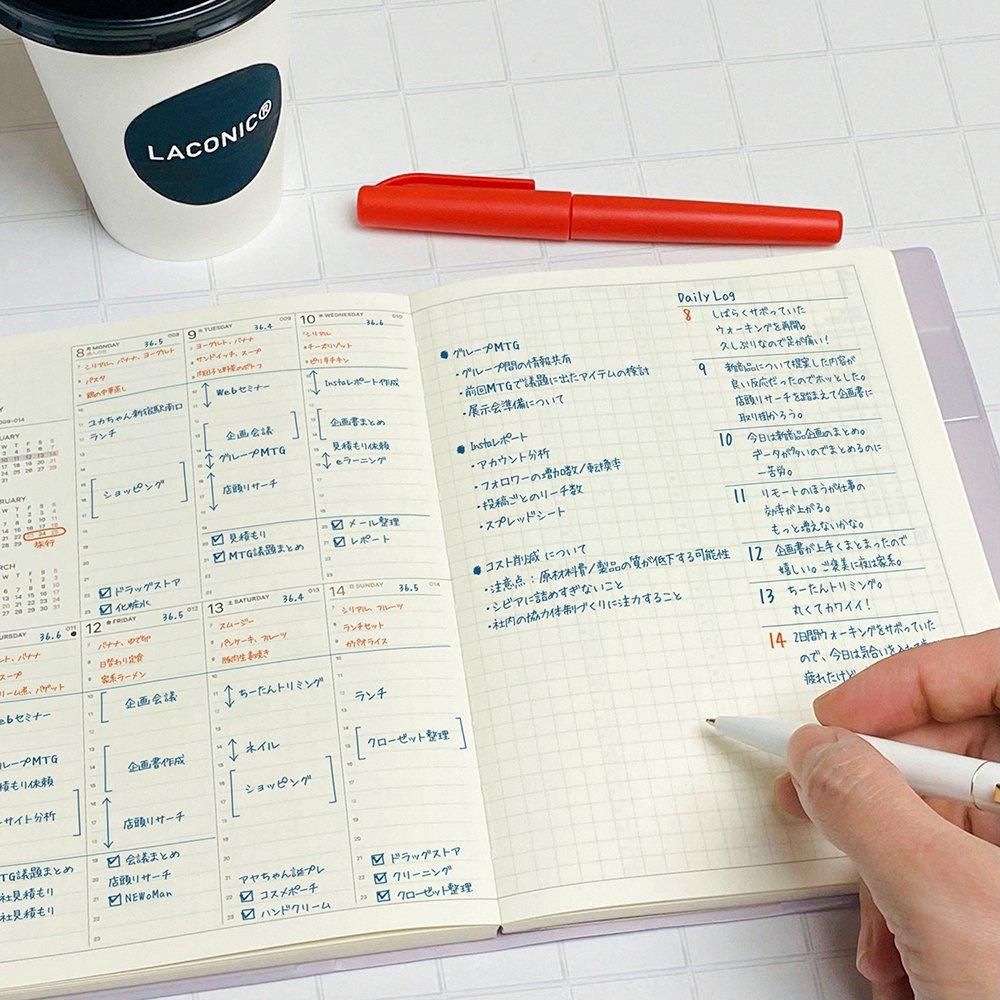 LACONIC®
8 月 MONDAY 008
成人の日
36.5
シリアル、バナナ、ヨーグルト
パスタ
鶏の中華蒸し
ユカちゃん新宿駅南口
ランチ
ショッピング
☑ ドラッグストア
☑ 化粧水
9 火 TUESDAY 009
36.4
ヨーグルト、バナナ
サンドイッチ、スープ
Webセミナー
企画会議
グループMTG
店頭リサーチ
☑ 見積もり
☑ MTG議題まとめ
10 水 WEDNESDAY 010
36.6
シリアル
チーズリゾット
ピリ辛チキン
Instaレポート作成
企画書まとめ
見積もり依頼
eラーニング
☑ メール整理
☑ レポート
旅行
36.6 011
12 金 FRIDAY 012
36.5
バナナ、ゆで卵
日替わり定食
家系ラーメン
企画会議
企画書作成
店頭リサーチ
☑ 会議まとめ
店頭リサーチ
☑ NEWoMan
13 土 SATURDAY 013
36.4
スムージー
パンケーキ、フルーツ
豚肉生姜焼き
ちーたんトリミング
ネイル
ショッピング
アヤちゃん誕プレ
☑ コスメポーチ
☑ ハンドクリーム
14 日 SUNDAY 014
36.5
シリアル、フルーツ
ランチセット
ガパオライス
ランチ
クローゼット整理
☑ ドラッグストア
☑ クリーニング
☑ クローゼット整理
● グループMTG
・グループ間の情報共有
・前回MTGで議題に出たアイテムの検討
・展示会準備について
● Instaレポート
・アカウント分析
・フォロワーの増加数/転換率
・投稿ごとのリーチ数
・スプレッドシート
● コスト削減 について
・注意点：原材料費/製品の質が低下する可能性
・シビアに詰めすぎないこと
・社内の協力体制づくりに注力すること
Daily Log
8 しばらくサボっていた
ウォーキングを再開。
久しぶりなので足が痛い！
9 新商品について提案した内容が
良い反応だったのでホッとした。
店頭リサーチを踏まえて企画書に
取り掛かろう。
10 今日は新商品企画のまとめ。
データが多いのでまとめるのに
一苦労。
11 リモートのほうが仕事の
効率が上がる。
もっと増えないかな。
12 企画書が上手くまとまったので
嬉しい。ご褒美に夜は家系。
13 ちーたんトリミング。
丸くてカワイイ！
14 2日間ウォーキングをサボっていた
ので、今日は気合いを入れて
疲れたけど